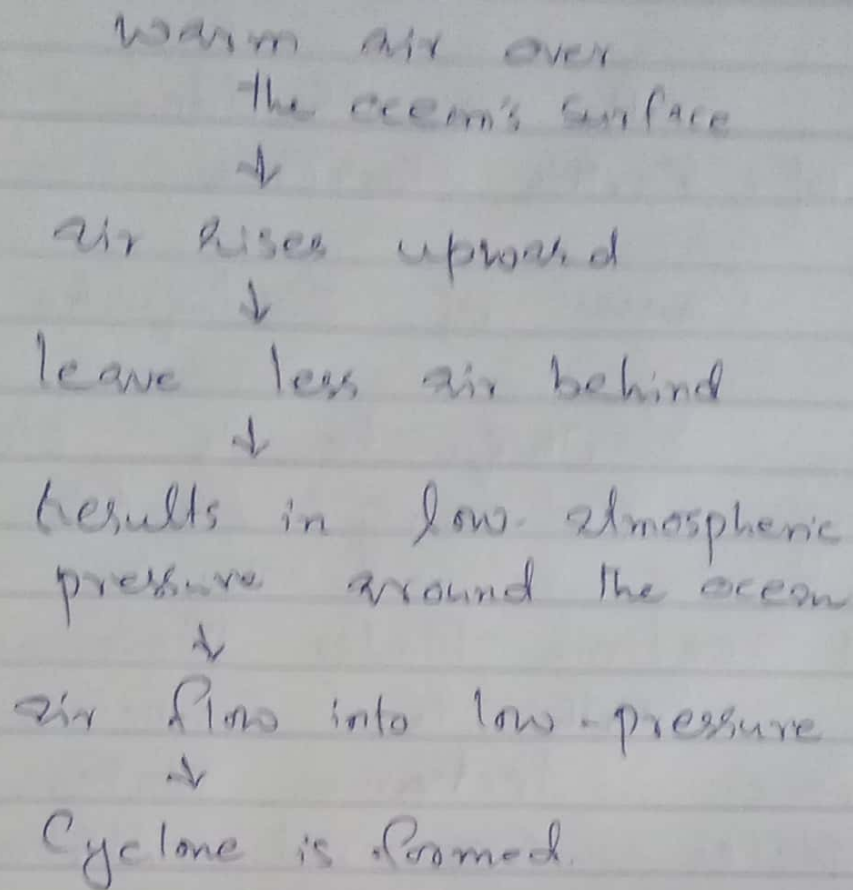 warm air over
the oceem's surface
↓
air rises upward
↓
leave less air behind
↓
results in low atmospheric
pressure around the ocean
↓
air flow into low-pressure
↓
Cyclone is formed.